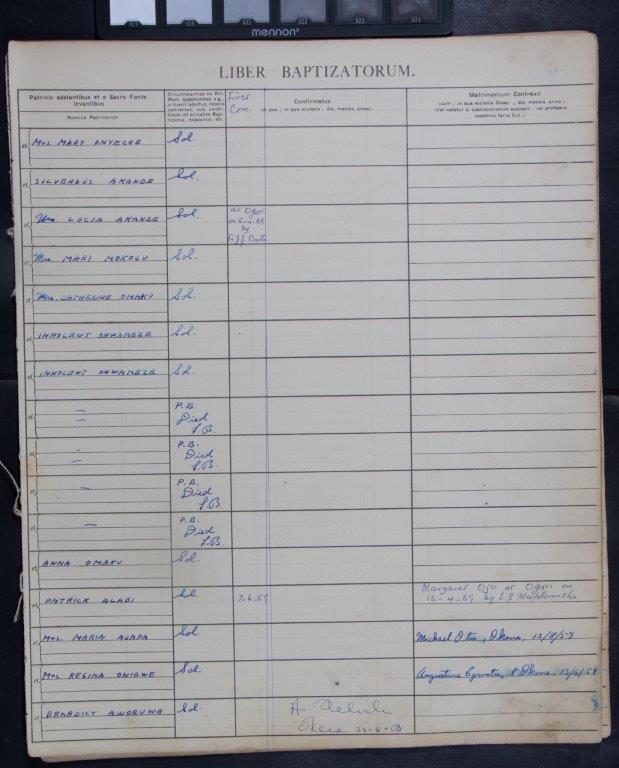 019 020 021 022 023 024
mennon
LIBER BAPTIZATORUM.
Patrinis adstantibus et e Sacro Fonte
levantibus
Nomina Patrinorum
Circumstantiae ex Rit.
Rom. apponendae, e.g.
si fuerit adultus, recens
conversus, sub condi-
tione vel privatim Bap-
tizatus, expositus, etc.
First
Com.
Confirmatus
(a quo ; in qua ecclesia ; die, mensis, anno)
Matrimonium Contraxit
(cum ; in qua ecclesia Dioec. ; die, mensis, anno.)
(Vel notetur si subdiaconatum suscepit vel professio
solemnis facta fuit.)
et Mrs. MARY ONYECHE Sol.
et SILVEROUS AKANDE Sol.
et Mrs. LUCIA AKANDE Sol. at Ogori
on 5-4-69
by
et Mrs. MARY MOKOGU Sol.
et Mrs. CATHERINE OMAKU Sol.
et INNOCENT ONWAMEZE Sol.
et INNOCENT ONWAMEZE Sol.
et — P.B.
Died
L.B.
et — P.B.
Died
L.B.
et — P.B.
Died
L.B.
et — P.B.
Died
L.B.
et ANNA OMAKU Sol.
et PATRICK ALABI Sol. 7.6.59 Margaret Ojo at Ogori on
13-4-69 by
et Mrs. MARIA AJAPA Sol. Michael Otu, Okene, 13/8/59
et Mrs REGINA ONIGWE Sol. Augustine Egwatu, Okene, 13/6/59
et BENEDICT AWORUWA Sol. A. Delisle
Okene